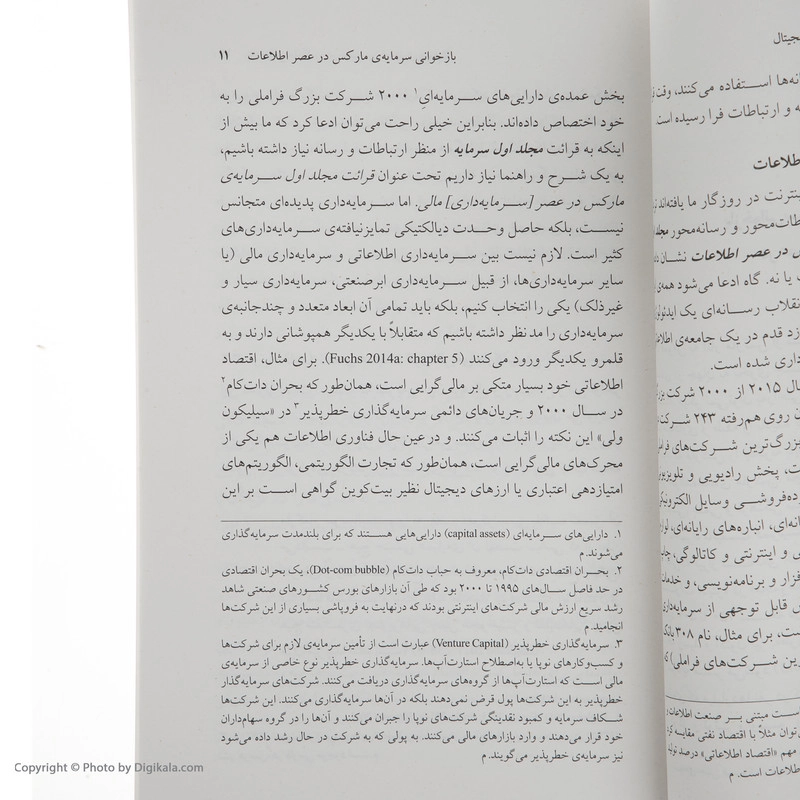 بازخوانی سرمایه‌ی مارکس در عصر اطلاعات ۱۱
بخش عمده‌ی دارایی‌های سرمایه‌ای۱ ۲۰۰۰ شرکت بزرگ فراملی را به
خود اختصاص داده‌اند. بنابراین خیلی راحت می‌توان ادعا کرد که ما بیش از
اینکه به قرائت مجلد اول سرمایه از منظر ارتباطات و رسانه نیاز داشته باشیم،
به یک شرح و راهنما نیاز داریم تحت عنوان قرائت مجلد اول سرمایه‌ی
مارکس در عصر [سرمایه‌داری] مالی. اما سرمایه‌داری پدیده‌ای متجانس
نیست، بلکه حاصل وحدت دیالکتیکی تمایزنیافته‌ی سرمایه‌داری‌های
کثیر است. لازم نیست بین سرمایه‌داری اطلاعاتی و سرمایه‌داری مالی (یا
سایر سرمایه‌داری‌ها، از قبیل سرمایه‌داری ابرصنعتی، سرمایه‌داری سیار و
غیرذلک) یکی را انتخاب کنیم، بلکه باید تمامی آن ابعاد متعدد و چندجانبه‌ی
سرمایه‌داری را مد نظر داشته باشیم که متقابلاً با یکدیگر همپوشانی دارند و به
قلمرو یکدیگر ورود می‌کنند (Fuchs 2014a: chapter 5). برای مثال، اقتصاد
اطلاعاتی خود بسیار متکی بر مالی‌گرایی است، همان‌طور که بحران دات‌کام۲
در سال ۲۰۰۰ و جریان‌های دائمی سرمایه‌گذاری خطرپذیر۳ در «سیلیکون
ولی» این نکته را اثبات می‌کنند. و در عین حال فناوری اطلاعات هم یکی از
محرک‌های مالی‌گرایی است، همان‌طور که تجارت الگوریتمی، الگوریتم‌های
امتیازدهی اعتباری یا ارزهای دیجیتال نظیر بیت‌کوین گواهی است بر این
۱. دارایی‌های سرمایه‌ای (capital assets) دارایی‌هایی هستند که برای بلندمدت سرمایه‌گذاری
می‌شوند. م
۲. بحران اقتصادی دات‌کام، معروف به حباب دات‌کام (Dot-com bubble)، یک بحران اقتصادی
در حد فاصل سال‌های ۱۹۹۵ تا ۲۰۰۰ بود که طی آن بازارهای بورس کشورهای صنعتی شاهد
رشد سریع ارزش مالی شرکت‌های اینترنتی بودند که درنهایت به فروپاشی بسیاری از این شرکت‌ها
انجامید. م
۳. سرمایه‌گذاری خطرپذیر (Venture Capital) عبارت است از تأمین سرمایه‌ی لازم برای شرکت‌ها
و کسب‌وکارهای نوپا یا به‌اصطلاح استارت‌آپ‌ها. سرمایه‌گذاری خطرپذیر نوع خاصی از سرمایه‌ی
مالی است که استارت‌آپ‌ها از گروه‌های سرمایه‌گذاری دریافت می‌کنند. شرکت‌های سرمایه‌گذار
خطرپذیر به این شرکت‌ها پول قرض نمی‌دهند بلکه در آن‌ها سرمایه‌گذاری می‌کنند. این شرکت‌ها
شکاف سرمایه و کمبود نقدینگی شرکت‌های نوپا را جبران می‌کنند و آن‌ها را در گروه سهام‌داران
خود قرار می‌دهند و وارد بازارهای مالی می‌کنند. به پولی که به شرکت در حال رشد داده می‌شود
نیز سرمایه‌ی خطرپذیر می‌گویند. م
انه‌ها استفاده می‌کنند، وقت
ه و ارتباطات فرا رسیده است
طلاعات
ینترنت در روزگار ما یافته‌اند
طات‌محور و رسانه‌محور مجلد
س در عصر اطلاعات نشان
ت یا نه. گاه ادعا می‌شود همه‌ی
نقلاب رسانه‌ای یک
زد قدم در یک جامعه‌ی
داری شده است.
ال ۲۰۱۵ از ۲۰۰۰ شرکت
ن روی هم‌رفته ۲۴۳
بزرگ‌ترین شرکت‌های
ت، پخش رادیویی و
ده‌فروشی وسایل
انه‌ای، انبارهای رایانه‌ای،
ی و اینترنتی و کاتالوگی،
فزار و برنامه‌نویسی، و خدمات
ش قابل توجهی از سرمایه‌داری
ست، برای مثال، نام ۳۰۸
ین شرکت‌های فراملی)
ست مبتنی بر صنعت اطلاعات
توان مثلاً با اقتصاد نفتی مقایسه
مهم «اقتصاد اطلاعاتی» درصد
طلاعات است. م
Copyright © Photo by Digikala.com